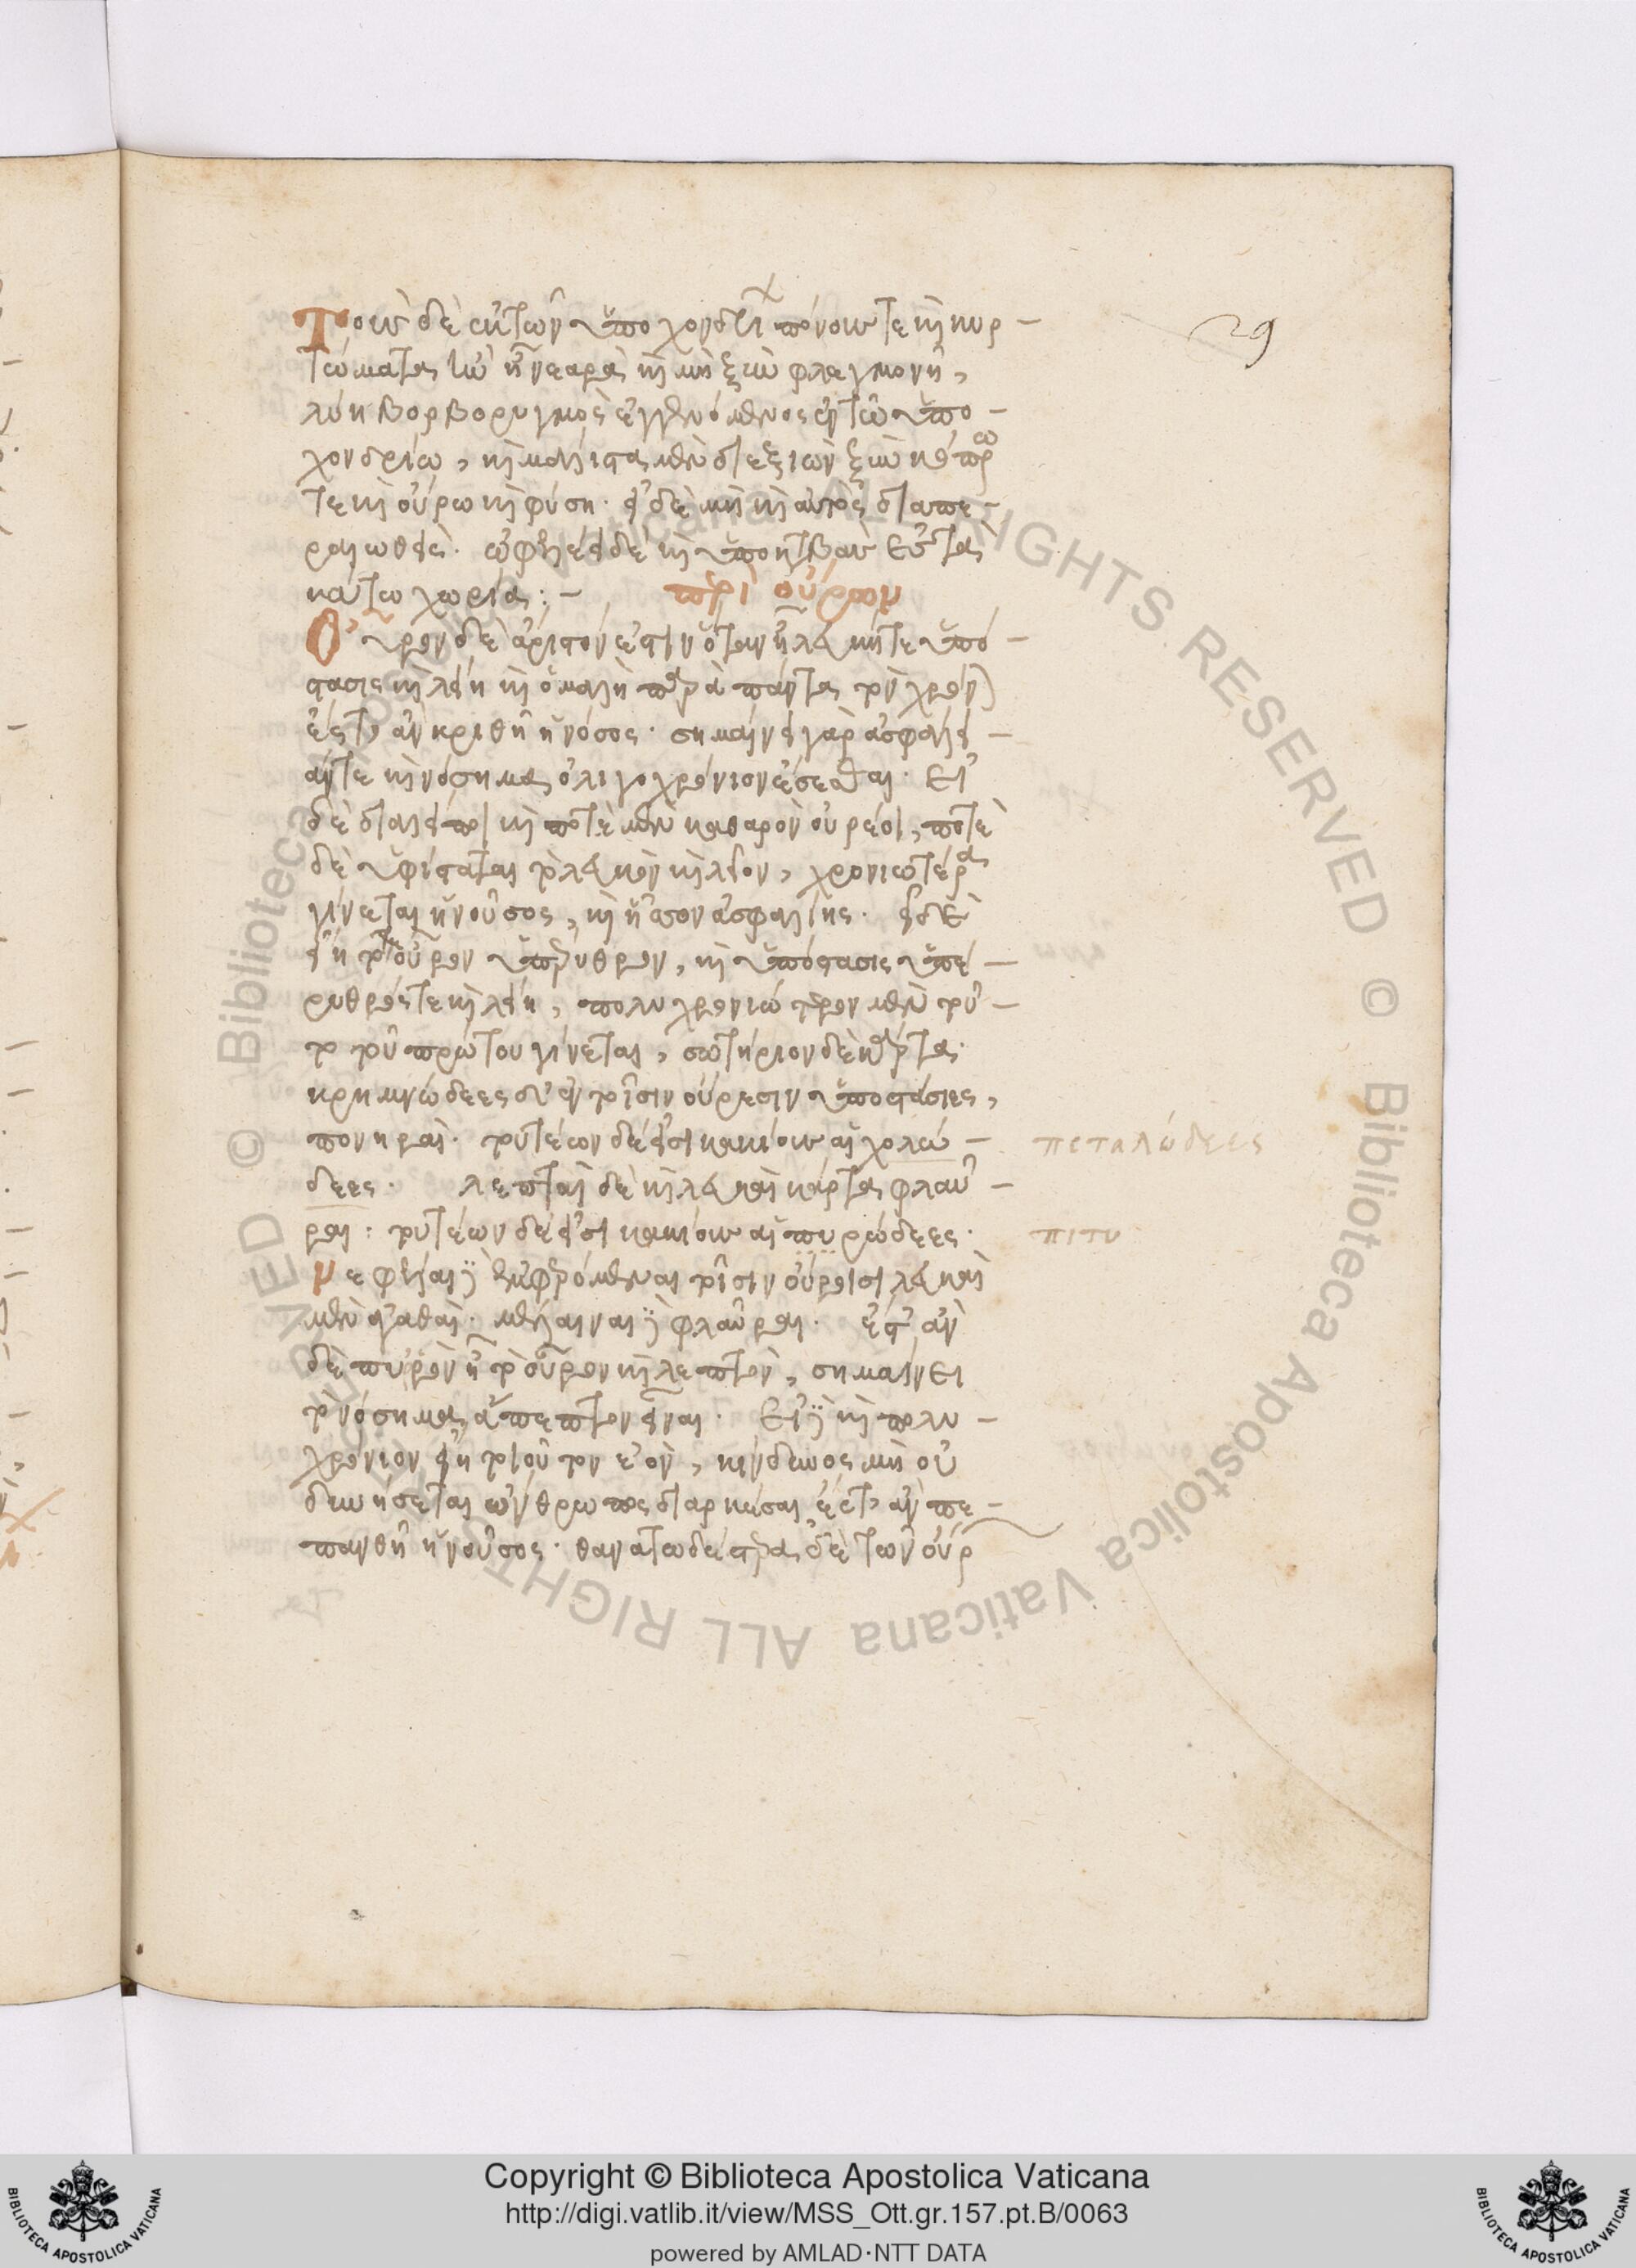 Τοὺς δὲ ἐκ τῶν ὑποχονδρίων πόνους τε καὶ κυρ –
τώματα, ἢν ᾖ νεαρὰ καὶ μὴ ξὺν φλεγμονῇ,
λύει βορβορυγμὸς ἐγγενόμενος ἐν τῷ ὑπο –
χονδρίῳ, καὶ μάλιστα μὲν διεξιὼν ξὺν κόπρῳ
τε καὶ οὔρῳ καὶ φύσῃ· εἰ δὲ μὴ καὶ αὐτὸς διαπε –
ραιωθείς· ὠφελέει δὲ καὶ ὑποκαταβὰν ἐς τὰ
κάτω χωρία: – περὶ οὔρων
Οὖρον δὲ ἄριστόν ἐστιν ὅταν ᾖ λευκή τε ὑπό –
στασις καὶ λείη καὶ ὁμαλὴ παρὰ πάντα τὸν χρόνον
ἔς τ' ἂν κριθῇ ἡ νόσος· σημαίνει γὰρ ἀσφαλεί –
αν τε καὶ νόσημα ὀλιγοχρόνιον ἔσεσθαι. Εἰ
δὲ διαλείποι καὶ ποτὲ μὲν καθαρὸν οὐρέοι, ποτὲ
δὲ ὑφίσταται τὸ λευκὸν καὶ λεῖον, χρονιωτέρα
γίνεται ἡ νοῦσος, καὶ ἧσσον ἀσφαλής. εἰ δὲ
εἴη τό τε οὖρον ὑπέρυθρον, καὶ ὑπόστασις ὑπέ –
ρυθρός τε καὶ λείη, πολυχρονιώτερον μὲν τοῦ –
το τοῦ πρώτου γίνεται, σωτήριον δὲ κάρτα.
κριμνώδεες δ' ἐν τοῖσιν οὔροισιν ὑποστάσιες,
πονηραί· τουτέων δέ εἰσι κακίους αἱ χολώ – πεταλώδεες
δεες. λεπταὶ δὲ καὶ λευκαὶ κάρτα φλαῦ –
ραι: τουτέων δέ εἰσι κακίους αἱ πυρώδεες. πιτυ
Νεφέλαι δὲ ἐμφερόμεναι τοῖσιν οὔροισι λευκαὶ
μὲν ἀγαθαί. μέλαιναι δὲ φλαῦραι. ἔστ' ἂν
δὲ πυρρὸν ᾖ τὸ οὖρον καὶ λεπτόν, σημαίνει
τὸ νόσημα ἄπεπτον εἶναι. Εἰ δὲ καὶ πολυ –
χρόνιον εἴη τοιοῦτον ἐόν, κίνδυνος μὴ οὐ
δυνήσεται ὥνθρωπος διαρκέσαι ἔς τ' ἂν πε –
πανθῇ ἡ νοῦσος. θανατωδέστερα δὲ τῶν οὔρ
29
Copyright © Biblioteca Apostolica Vaticana
http://digi.vatlib.it/view/MSS_Ott.gr.157.pt.B/0063
powered by AMLAD·NTT DATA
BIBLIOTECA APOSTOLICA VATICANA
BIBLIOTECA APOSTOLICA VATICANA
© Biblioteca Apostolica Vaticana ALL RIGHTS RESERVED © Biblioteca Apostolica Vaticana ALL RIGHTS RESERVED